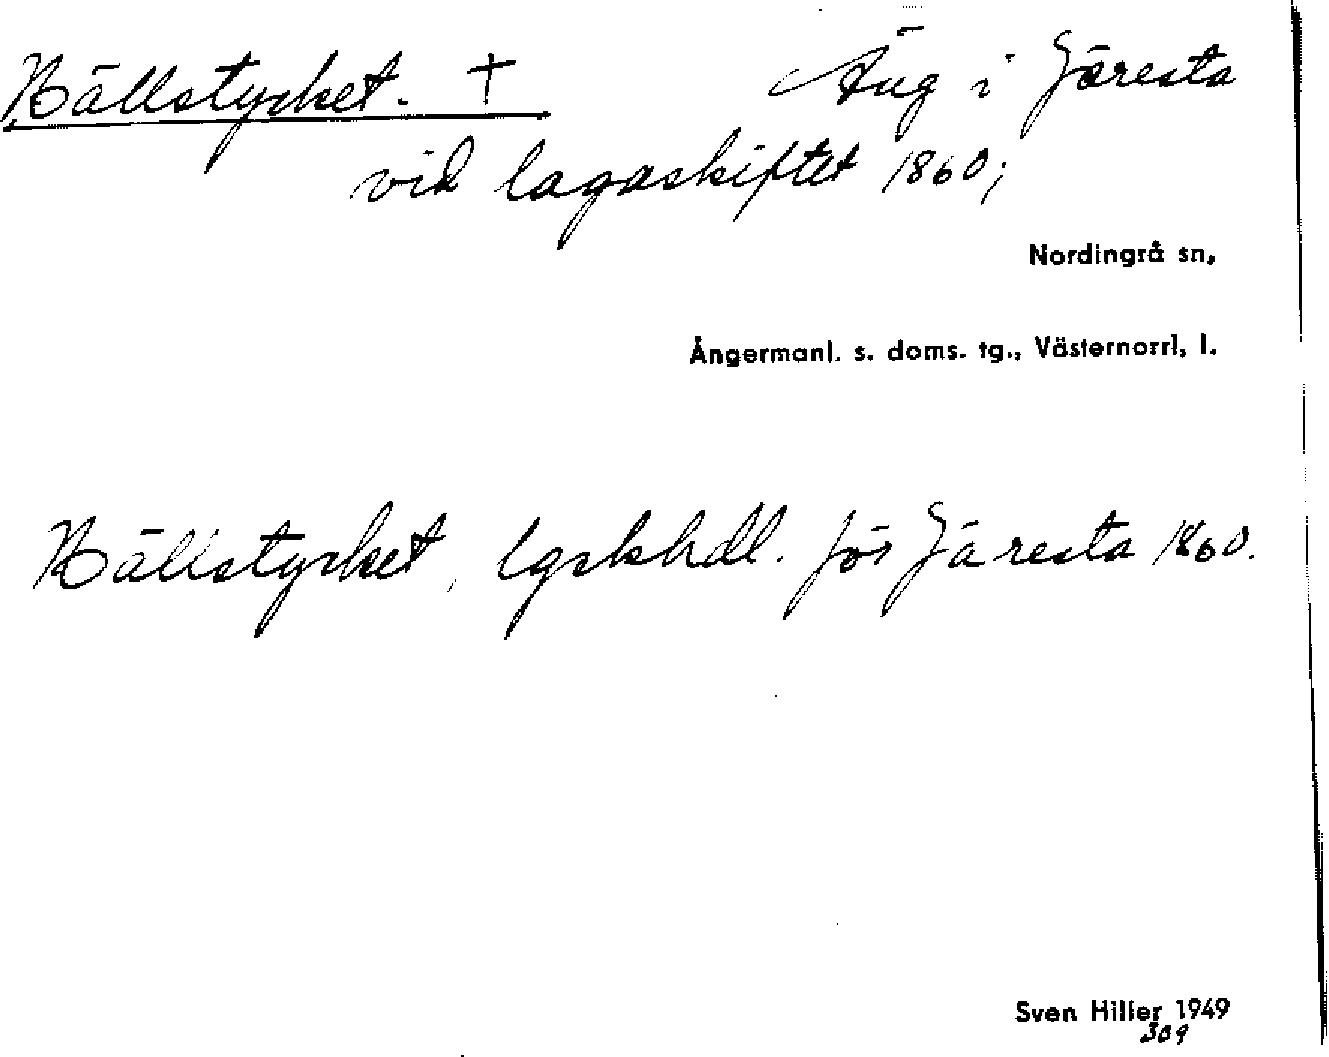 Källstycket. † Äng i Järesta
vid lagaskiftet 1860;
Nordingrå sn,
Ångermanl. s. doms. tg., Västernorrl, l.
Källstycket, lgskhdl. för Järesta 1860.
Sven Hiller 1949
309